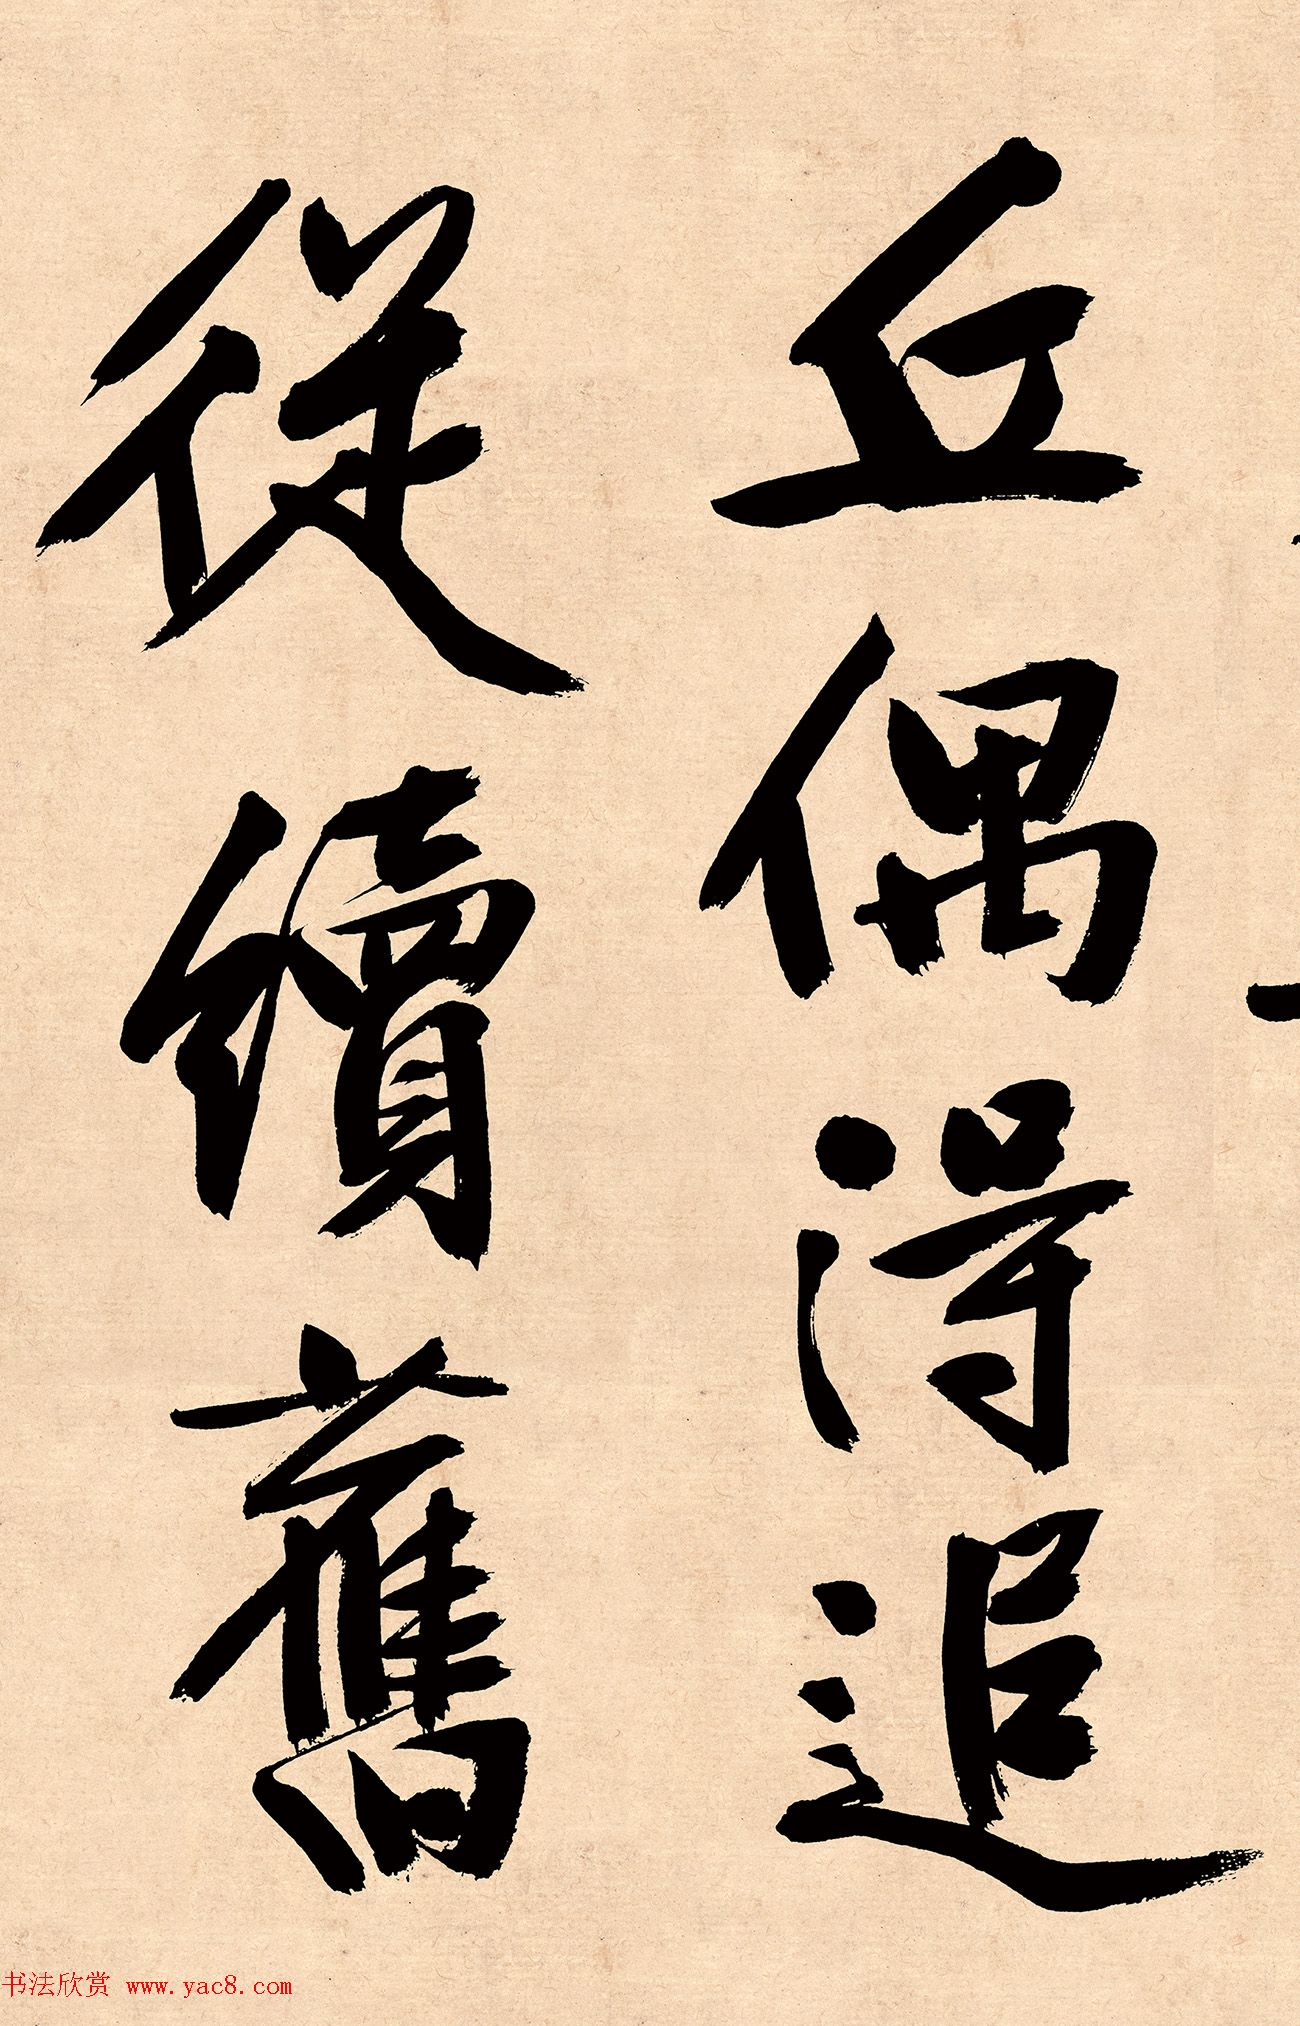 丘偶得追
從續舊
书法欣赏 www.yac8.com